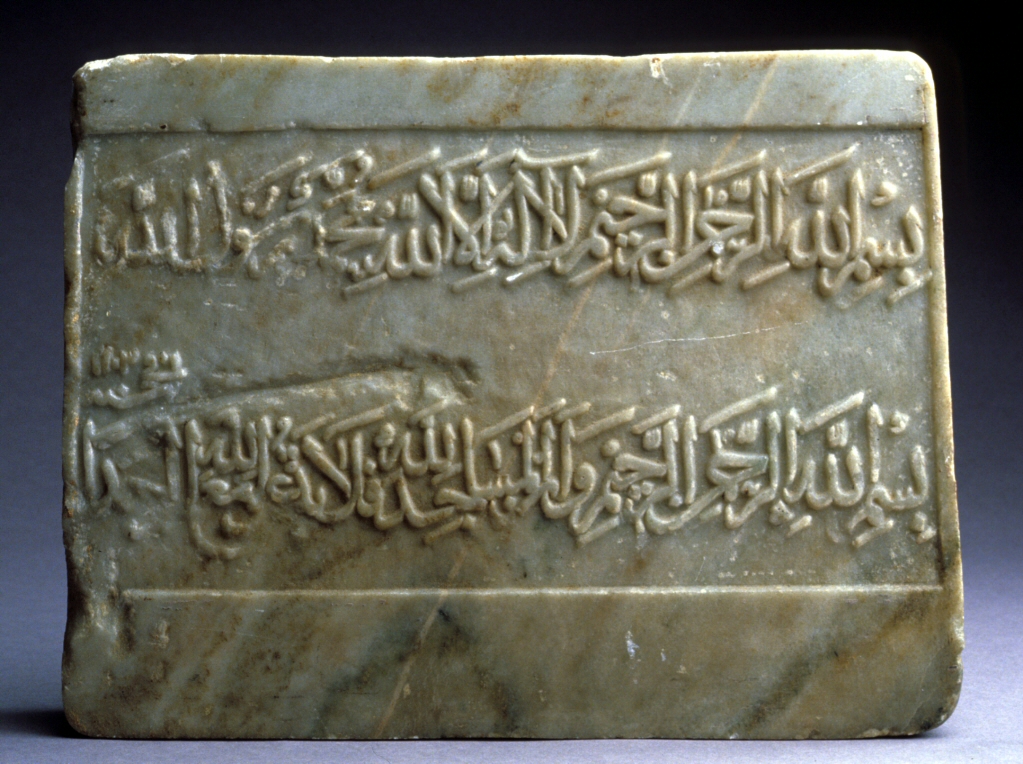 بسم الله الرحمن الرحيم لا اله الا الله محمد رسول الله
١٢٠٣
بسم الله الرحمن الرحيم وان المساجد لله فلا تدعوا مع الله احدا